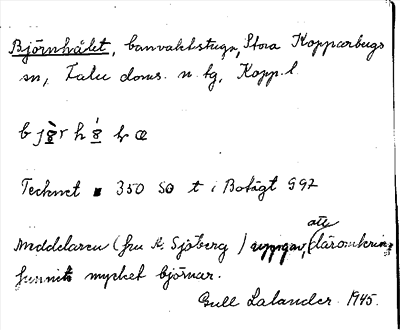 Björnhålet, banvaktstuga, Stora Kopparbergs
sn, Falu doms. n. tg, Kopp. l.
Tecknet 350 SO t i Botägt G97
Meddelaren (fru A. Sjöberg) uppgav, att
däromkring
funnits mycket björnar.
Gull Lalander 1945.